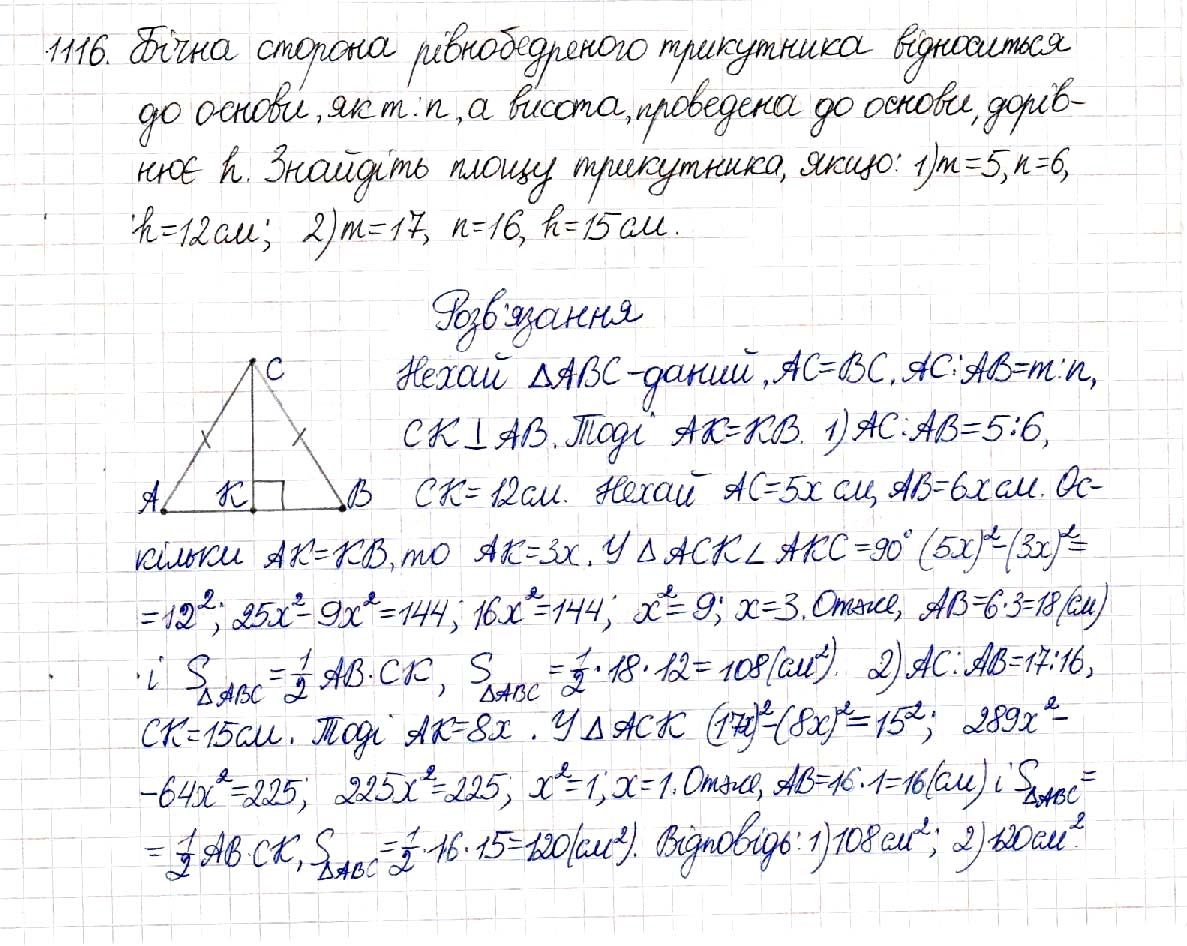 1116. Бічна сторона рівнобедреного трикутника відноситься
до основи, як m:n, а висота, проведена до основи, дорів-
нює h. Знайдіть площу трикутника, якщо: 1) m=5, n=6,
h=12 см; 2) m=17, n=16, h=15 см.
Розв'язання
C
A K B
Нехай △ABC - даний, AC=BC, AC:AB=m:n,
CK⊥AB. Тоді AK=KB. 1) AC:AB=5:6,
CK=12 см. Нехай AC=5x см, AB=6x см. Ос-
кільки AK=KB, то AK=3x. У △ACK ∠AKC=90° (5x)²-(3x)²=
=12²; 25x²-9x²=144; 16x²=144; x²=9; x=3. Отже, AB=6·3=18(см)
і S△ABC=1/2 AB·CK, S△ABC=1/2·18·12=108(см²). 2) AC:AB=17:16,
CK=15см. Тоді AK=8x. У △ACK (17x)²-(8x)²=15²; 289x²-
-64x²=225; 225x²=225; x²=1; x=1. Отже, AB=16·1=16(см) і S△ABC=
=1/2 AB·CK, S△ABC=1/2·16·15=120(см²). Відповідь: 1) 108 см²; 2) 120 см².